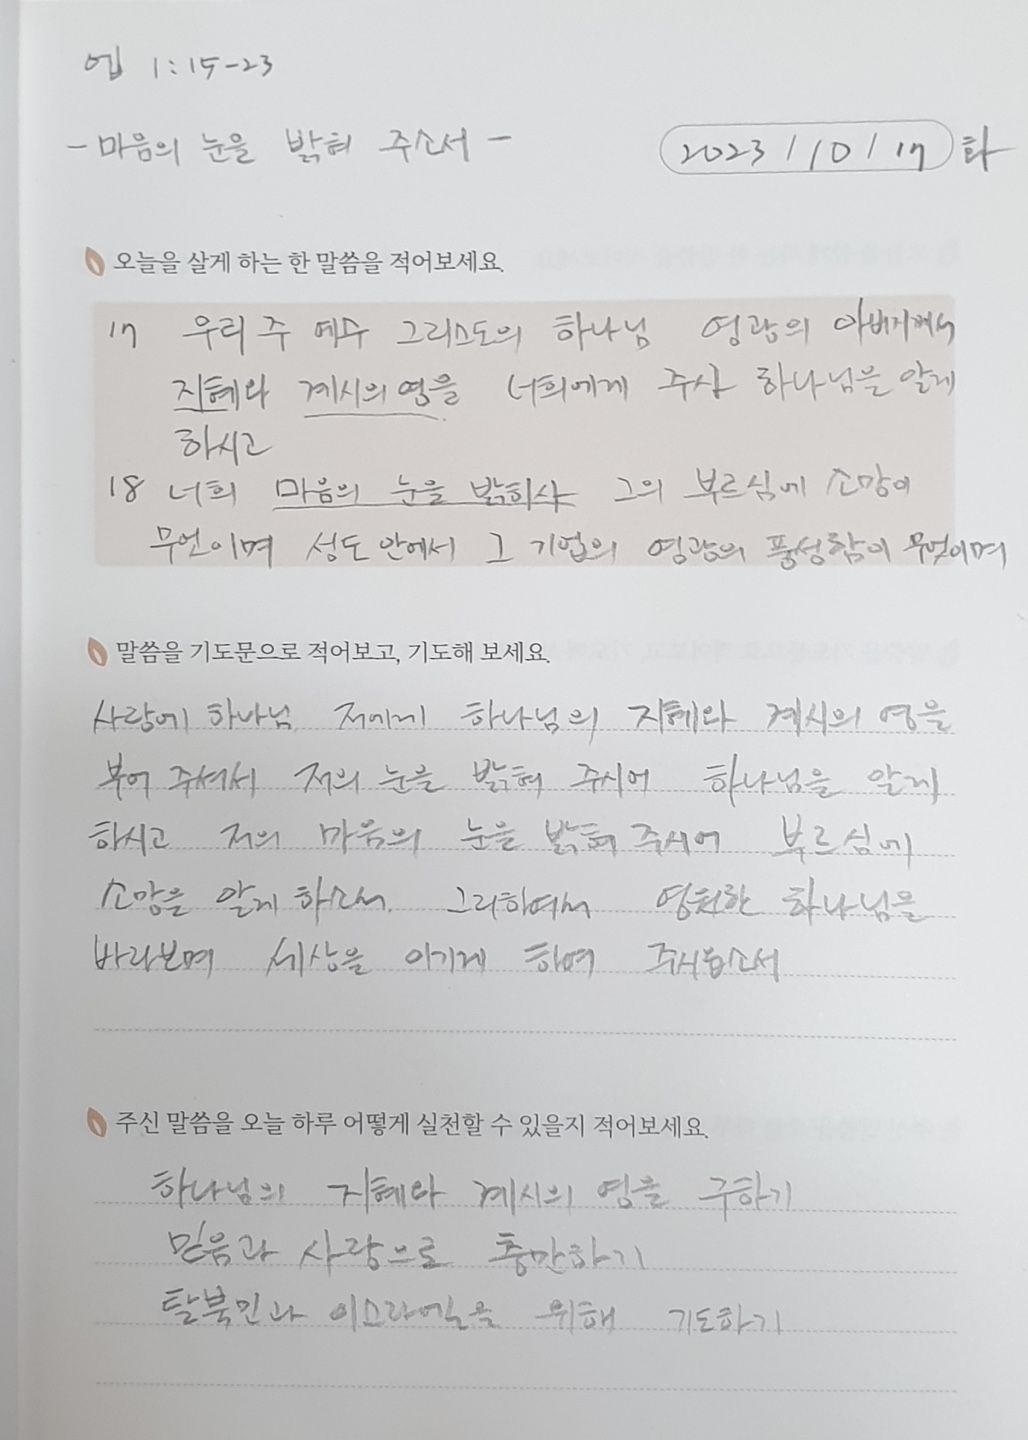 엡 1:15-23
- 마음의 눈을 밝혀 주소서 -
2023/10/17 화
오늘을 살게 하는 한 말씀을 적어보세요.
17 우리 주 예수 그리스도의 하나님 영광의 아버지께서
지혜와 계시의 영을 너희에게 주사 하나님을 알게
하시고
18 너희 마음의 눈을 밝히사 그의 부르심에 소망이
무언이며 성도 안에서 그 기업의 영광의 풍성함이 무엇이며
말씀을 기도문으로 적어보고, 기도해 보세요.
사랑에 하나님. 저에게 하나님의 지혜와 계시의 영을
부어 주셔서 저의 눈을 밝혀 주시어 하나님을 알게
하시고 저의 마음의 눈을 밝혀 주시어 부르심에
소망을 알게 하소서. 그리하여서 영원한 하나님을
바라보며 세상을 이기게 하여 주시옵소서
주신 말씀을 오늘 하루 어떻게 실천할 수 있을지 적어보세요.
하나님의 지혜와 계시의 영을 구하기
믿음과 사랑으로 충만하기
탈북민과 이스라엘을 위해 기도하기